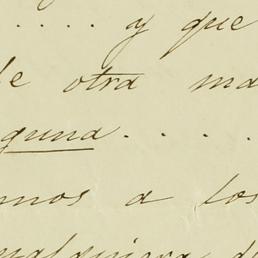 .... y que
de otra ma
guna....
mos a los